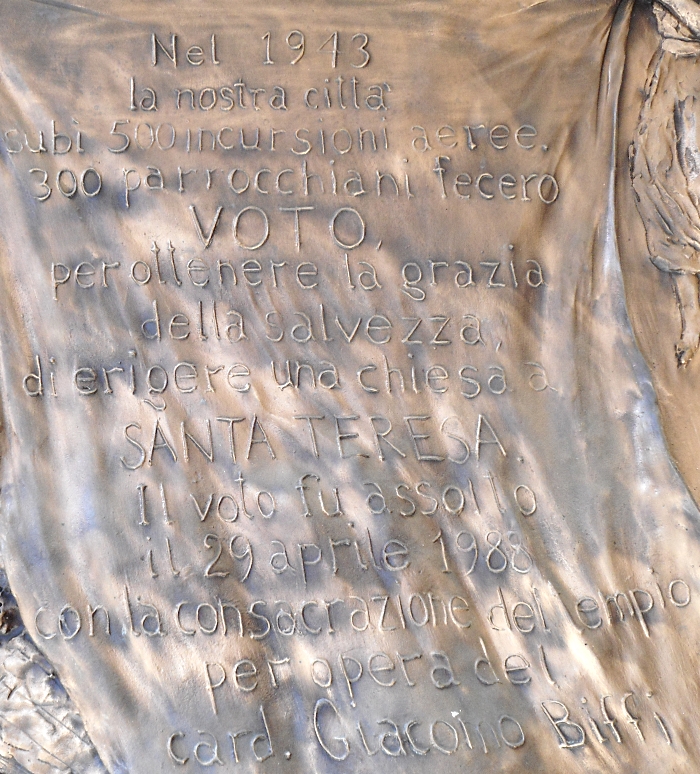 Nel 1943
la nostra città
subì 500 incursioni aeree.
300 parrocchiani fecero
VOTO,
per ottenere la grazia
della salvezza,
di erigere una chiesa a
SANTA TERESA.
Il voto fu assolto
il 29 aprile 1988
con la consacrazione del tempio
per opera del
card. Giacomo Biffi